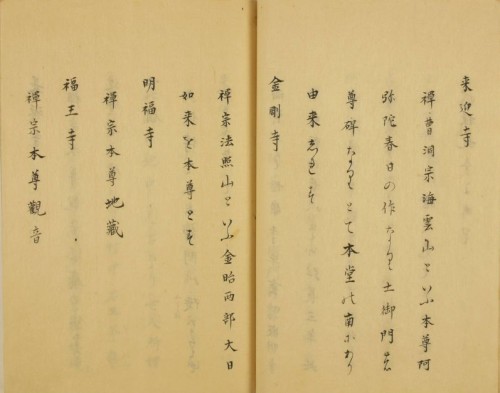 来迎寺
禅曹洞宗海雲山といふ本尊阿
弥陀春日の作なり土御門
尊碑なりとて本堂の南にあり
由来しれす
金剛寺
禅宗法照山といふ金胎両部大日
如来を本尊とす
明福寺
禅宗本尊地蔵
福王寺
禅宗本尊観音